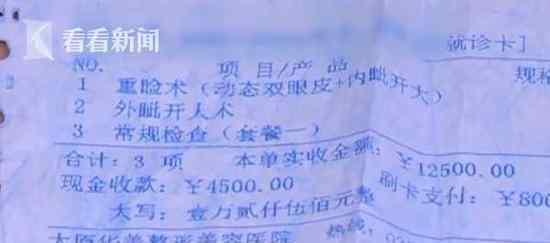 看看新闻
就诊卡]
NO. 项目/产品 规格
1 重睑术（动态双眼皮+内眦开大）
2 外眦开大术
3 常规检查（套餐一）
合计：3 项 本单实收金额：￥12500.00
现金收款：￥4500.00 刷卡支付：￥800
大写：壹万贰仟伍佰元整
太原华美整形美容医院 热线：